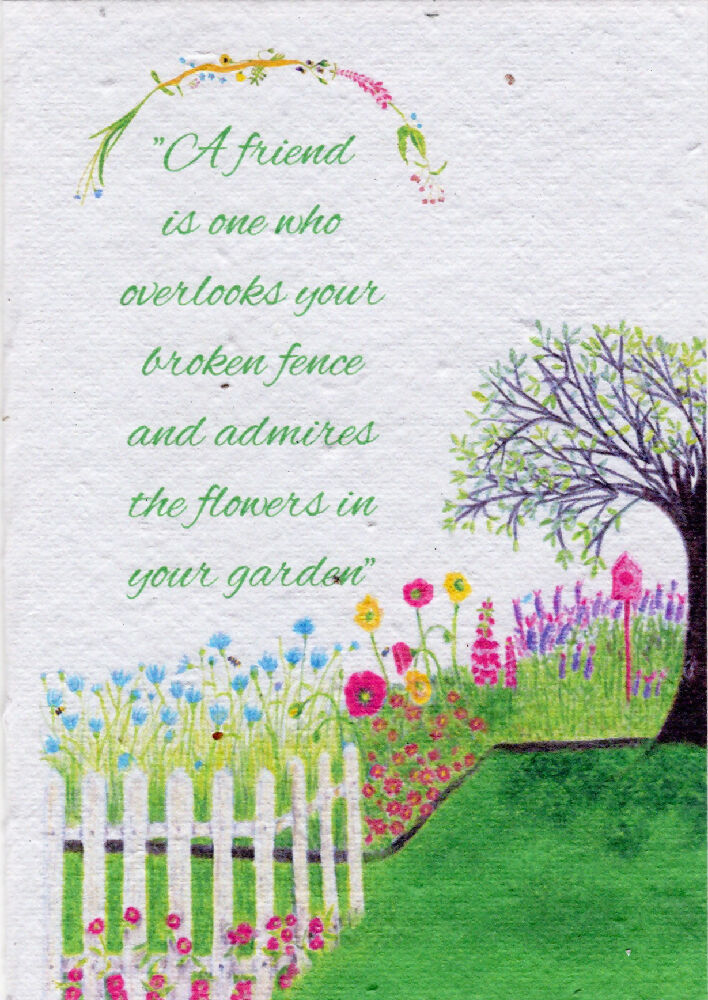 ”A friend
is one who
overlooks your
broken fence
and admires
the flowers in
your garden”